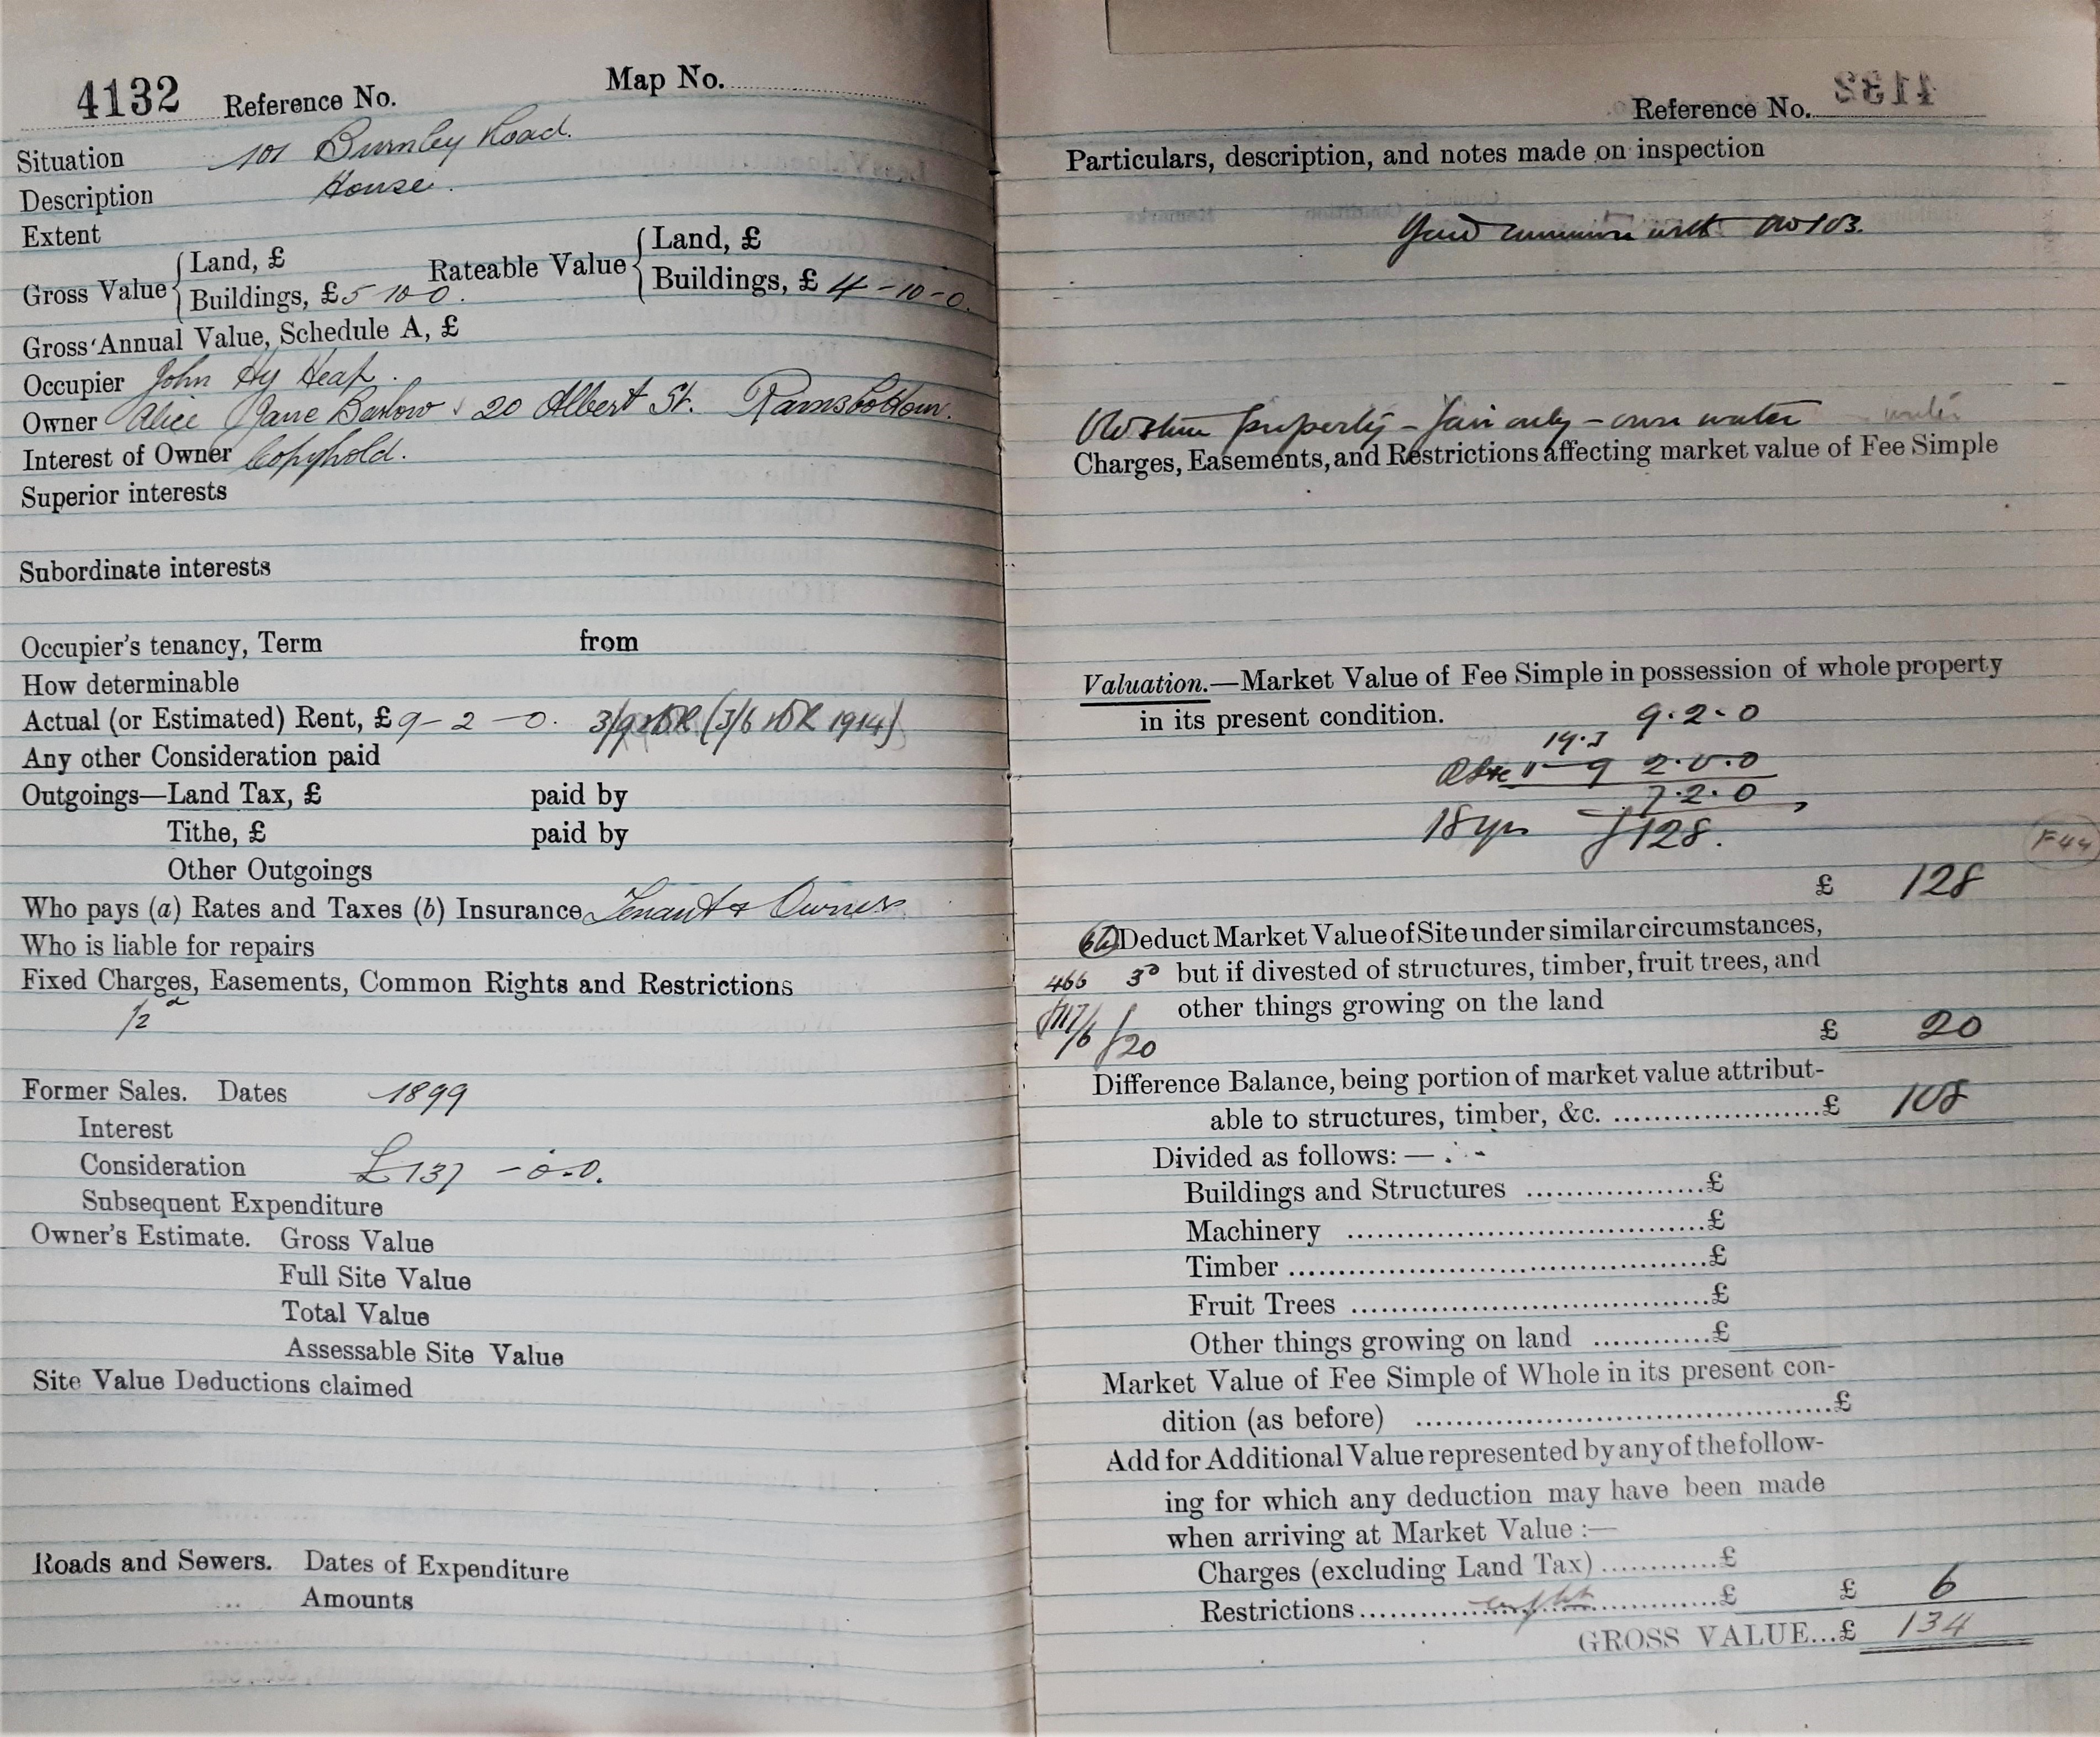 4132 Reference No. Map No.
Situation 101 Burnley Road.
Description House.
Extent
Gross Value { Land, £
Buildings, £5 10 0. Rateable Value { Land, £
Buildings, £ 4-10-0.
Gross Annual Value, Schedule A, £
Occupier John Hy Heap.
Owner Alice Jane Barlow 20 Albert St. Ramsbottom.
Interest of Owner Copyhold.
Superior interests
Subordinate interests
Occupier's tenancy, Term from
How determinable
Actual (or Estimated) Rent, £9-2-0. 3/9 (3/6 1914)
Any other Consideration paid
Outgoings—Land Tax, £ paid by
Tithe, £ paid by
Other Outgoings
Who pays (a) Rates and Taxes (b) Insurance Tenant & Owner
Who is liable for repairs
Fixed Charges, Easements, Common Rights and Restrictions
1/2 d
Former Sales. Dates 1899
Interest
Consideration £137-0-0.
Subsequent Expenditure
Owner's Estimate. Gross Value
Full Site Value
Total Value
Assessable Site Value
Site Value Deductions claimed
Roads and Sewers. Dates of Expenditure
Amounts
Reference No.
Particulars, description, and notes made on inspection
Yard common with No 103.
Old stone property - fair only - own water
Charges, Easements, and Restrictions affecting market value of Fee Simple
Valuation.—Market Value of Fee Simple in possession of whole property
in its present condition. 9.2.0
2.0.0
7.2.0
18 yrs £128.
F44
£ 128
Deduct Market Value of Site under similar circumstances,
466 3d but if divested of structures, timber, fruit trees, and
other things growing on the land
£20
£ 20
Difference Balance, being portion of market value attribut-
able to structures, timber, &c. £ 108
Divided as follows: —
Buildings and Structures £
Machinery £
Timber £
Fruit Trees £
Other things growing on land £
Market Value of Fee Simple of Whole in its present con-
dition (as before) £
Add for Additional Value represented by any of the follow-
ing for which any deduction may have been made
when arriving at Market Value :—
Charges (excluding Land Tax) £
Restrictions £ £ 6
GROSS VALUE...£ 134